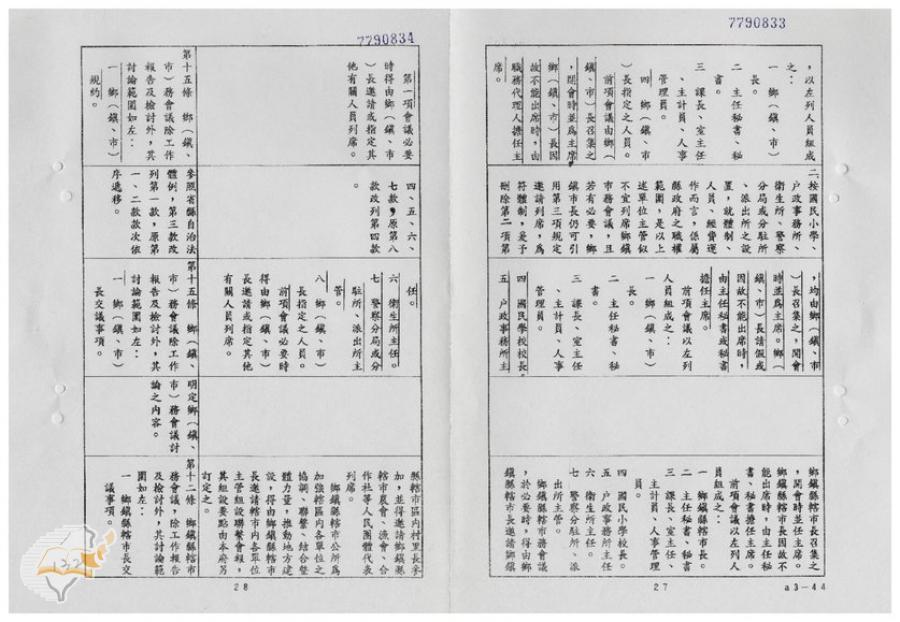 7790833
，以左列人員組成
之：
一 鄉（鎮、市）
長。
二 主任秘書、秘
書。
三 課長、室主任
、主計員、人事
管理員。
四 鄉（鎮、市
）長指定之人員。
前項會議由鄉（
鎮、市）長召集之
，開會時並為主席
，鄉（鎮、市）長因
故不能出席時，由
職務代理人擔任主
席。
二、按國民小學、
戶政事務所、
衛生所、警察
分局或分駐所
、派出所之設
置，就體制、
人員、經費運
作而言，係屬
縣政府之職權
範圍，是以上
述單位主管似
不宜列席鄉鎮
市務會議，且
若有必要，鄉
鎮市長仍可引
用第三項規定
邀請列席，為
符體制，爰予
刪除第二項第
，均由鄉（鎮、市
）長召集之，開會
時並為主席。鄉（
鎮、市）長請假或
因故不能出席時，
由主任秘書或秘書
擔任主席。
前項會議以左列
人員組成之：
一 鄉（鎮、市）
長。
二 主任秘書、秘
書。
三 課長、室主任
、主計員、人事
管理員。
四 國民學校校長
五 戶政事務所主
鄉鎮縣轄市長召集之
，開會時並任主席。
鄉鎮縣轄市長因故不
能出席時，由主任秘
書、秘書擔任主席。
前項會議以左列人
員組成之：
一 鄉鎮縣轄市長。
二 主任秘書、秘書
三 課長、室主任、
主計員、人事管理
員。
四 國民小學校長。
五 戶政事務所主任
六 衛生所主任。
七 警察分駐所、派
出所主管。
鄉鎮縣轄市務會議
，於必要時，得由鄉
鎮縣轄市長邀請鄉鎮
27
a3-44
7790834
第一項會議必要
時得由鄉（鎮、市
）長邀請或指定其
他有關人員列席。
第十五條 鄉（鎮、
市）務會議除工作
報告及檢討外，其
討論範圍如左：
一 鄉（鎮、市）
規約。
四、五、六、
七款，原第八
款改列第四款
。
參照省縣自治法
體例，第三款改
列第一款，原第
一、二款款次依
序遞移。
任。
六 衛生所主任。
七 警察分局或分
駐所、派出所主
管。
八 鄉（鎮、市）
長指定之人員。
前項會議必要時
得由鄉（鎮、市）
長邀請或指定其他
有關人員列席。
第十五條 鄉（鎮、
市）務會議，除工作
報告及檢討外，其
討論範圍如左：
一 鄉（鎮、市）
長交議事項。
明定鄉（鎮、
市）務會議討
論之內容。
縣轄市區內村里長參
加，並得邀請鄉鎮縣
轄市農會、漁會、合
作社等人民團體代表
列席。
鄉鎮縣轄市公所為
加強轄區內各單位之
協調、聯繫、結合整
體力量，推動地方建
設，得由鄉鎮縣轄市
長邀請轄市內各單位
主管組設聯繫會報，
其組設要點由本府另
訂定之。
第十二條 鄉鎮縣轄市
務會議，除工作報告
及檢討外，其討論範
圍如左：
一 鄉鎮縣轄市長交
議事項。
28